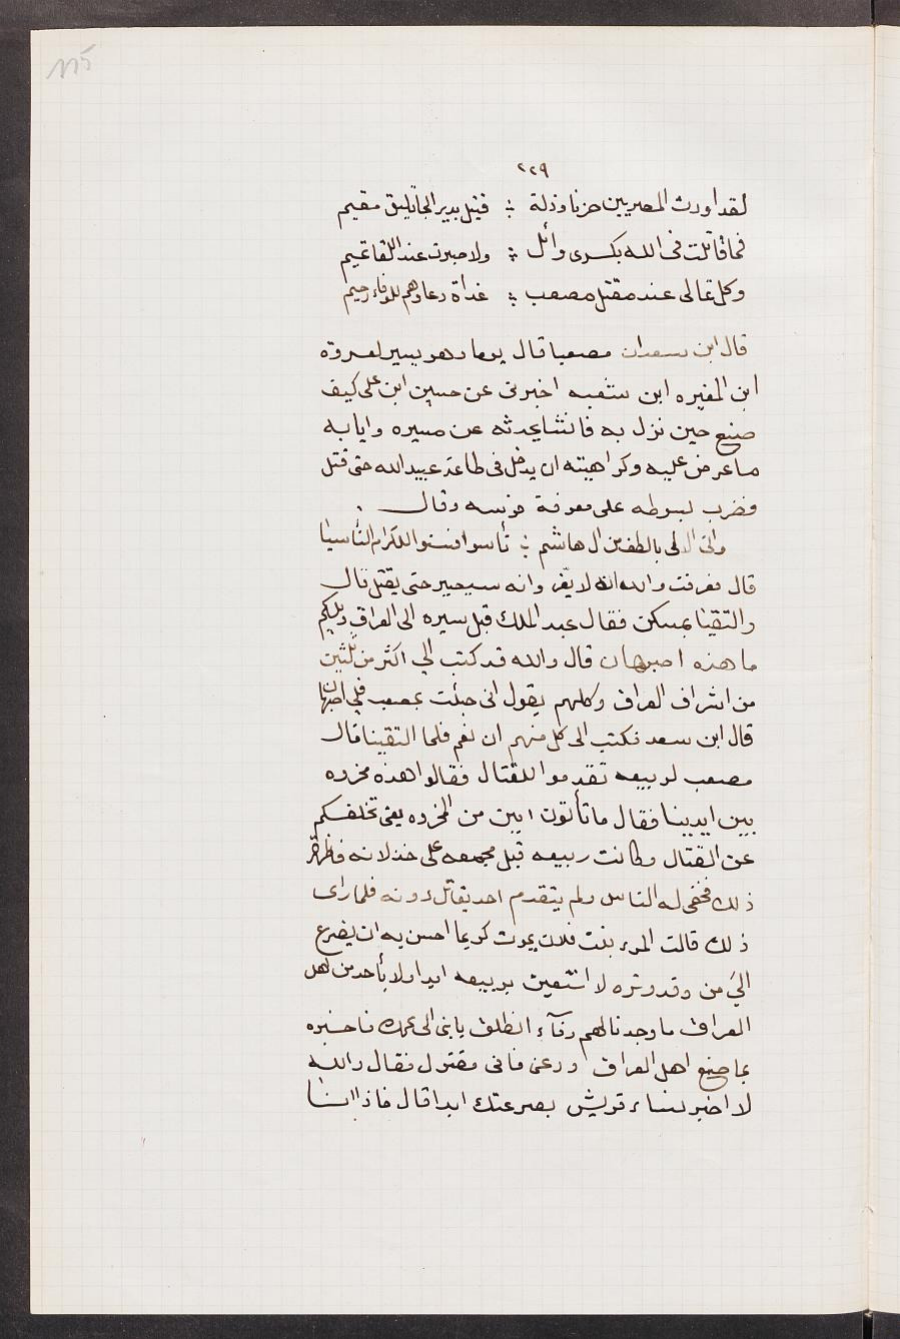 115
٢٢٩
لقد اورث المصريين حزنا وذلة ؛ قتيل بدير الجاثليق مقيم
فما قاتلت فى الله بكرى وائل ؛ ولا صبرت عند اللقا تميم
وكل تمالى عند مقتل مصعب ؛ غداة دعاوهم للوفاء رحيم
قال ابن سعدان مصعبا قال يوما وهو يسير لعروة
ابن المغيره ابن شعبه اخبرنى عن حسين ابن على كيف
صنع حين نزل به فانشا يحدثه عن مسيره وايابه
ما عرض عليه وكراهيته ان يدخل فى طاعة عبيد الله حتى قتل
فضرب بسوطه على معرفة فرسه وقال
وان الالى بالطف من ال هاشم ؛ تأسوا فسنوا للكرام التأسيا
قال فعرفت والله انه لا يفر وانه سيصبر حتى يقتل قال
والتقينا بمسكن فقال عبد الملك قبل سيره الى العراق ويلكم
ما هذه اصبهان قال والله قد كتب الي اكثر من ثلثين
من اشراف العراق وكلهم يقول انى جئت بمصعب فلى اصبهان
قال ابن سعد فكتب الى كل منهم ان نعم فلما التقينا قال
مصعب لربيعه تقدموا للقتال فقالوا هذه مخروه
بين ايدينا فقال ما تأتون ابين من المخروه يعنى تخلفكم
عن القتال وكانت ربيعه قبل مجمعه على خذلانه فاظهرت
ذلك فخفى له الناس ولم يتقدم احد يقاتل دونه فلما راى
ذلك قالت المرء بنت فلان يموت كريما احسن به ان يضرع
الي من وقد وتره لا استعين بربيعه ابدا ولا بأحد من اهل
العراق ما وجدنا لهم وفآء انطلق يا بنى الى عمك فاخبره
بما صنع اهل العراق ودعنى فانى مقتول فقال والله
لا اخبر نساء قريش بصرعتك ابدا قال فاذا انت